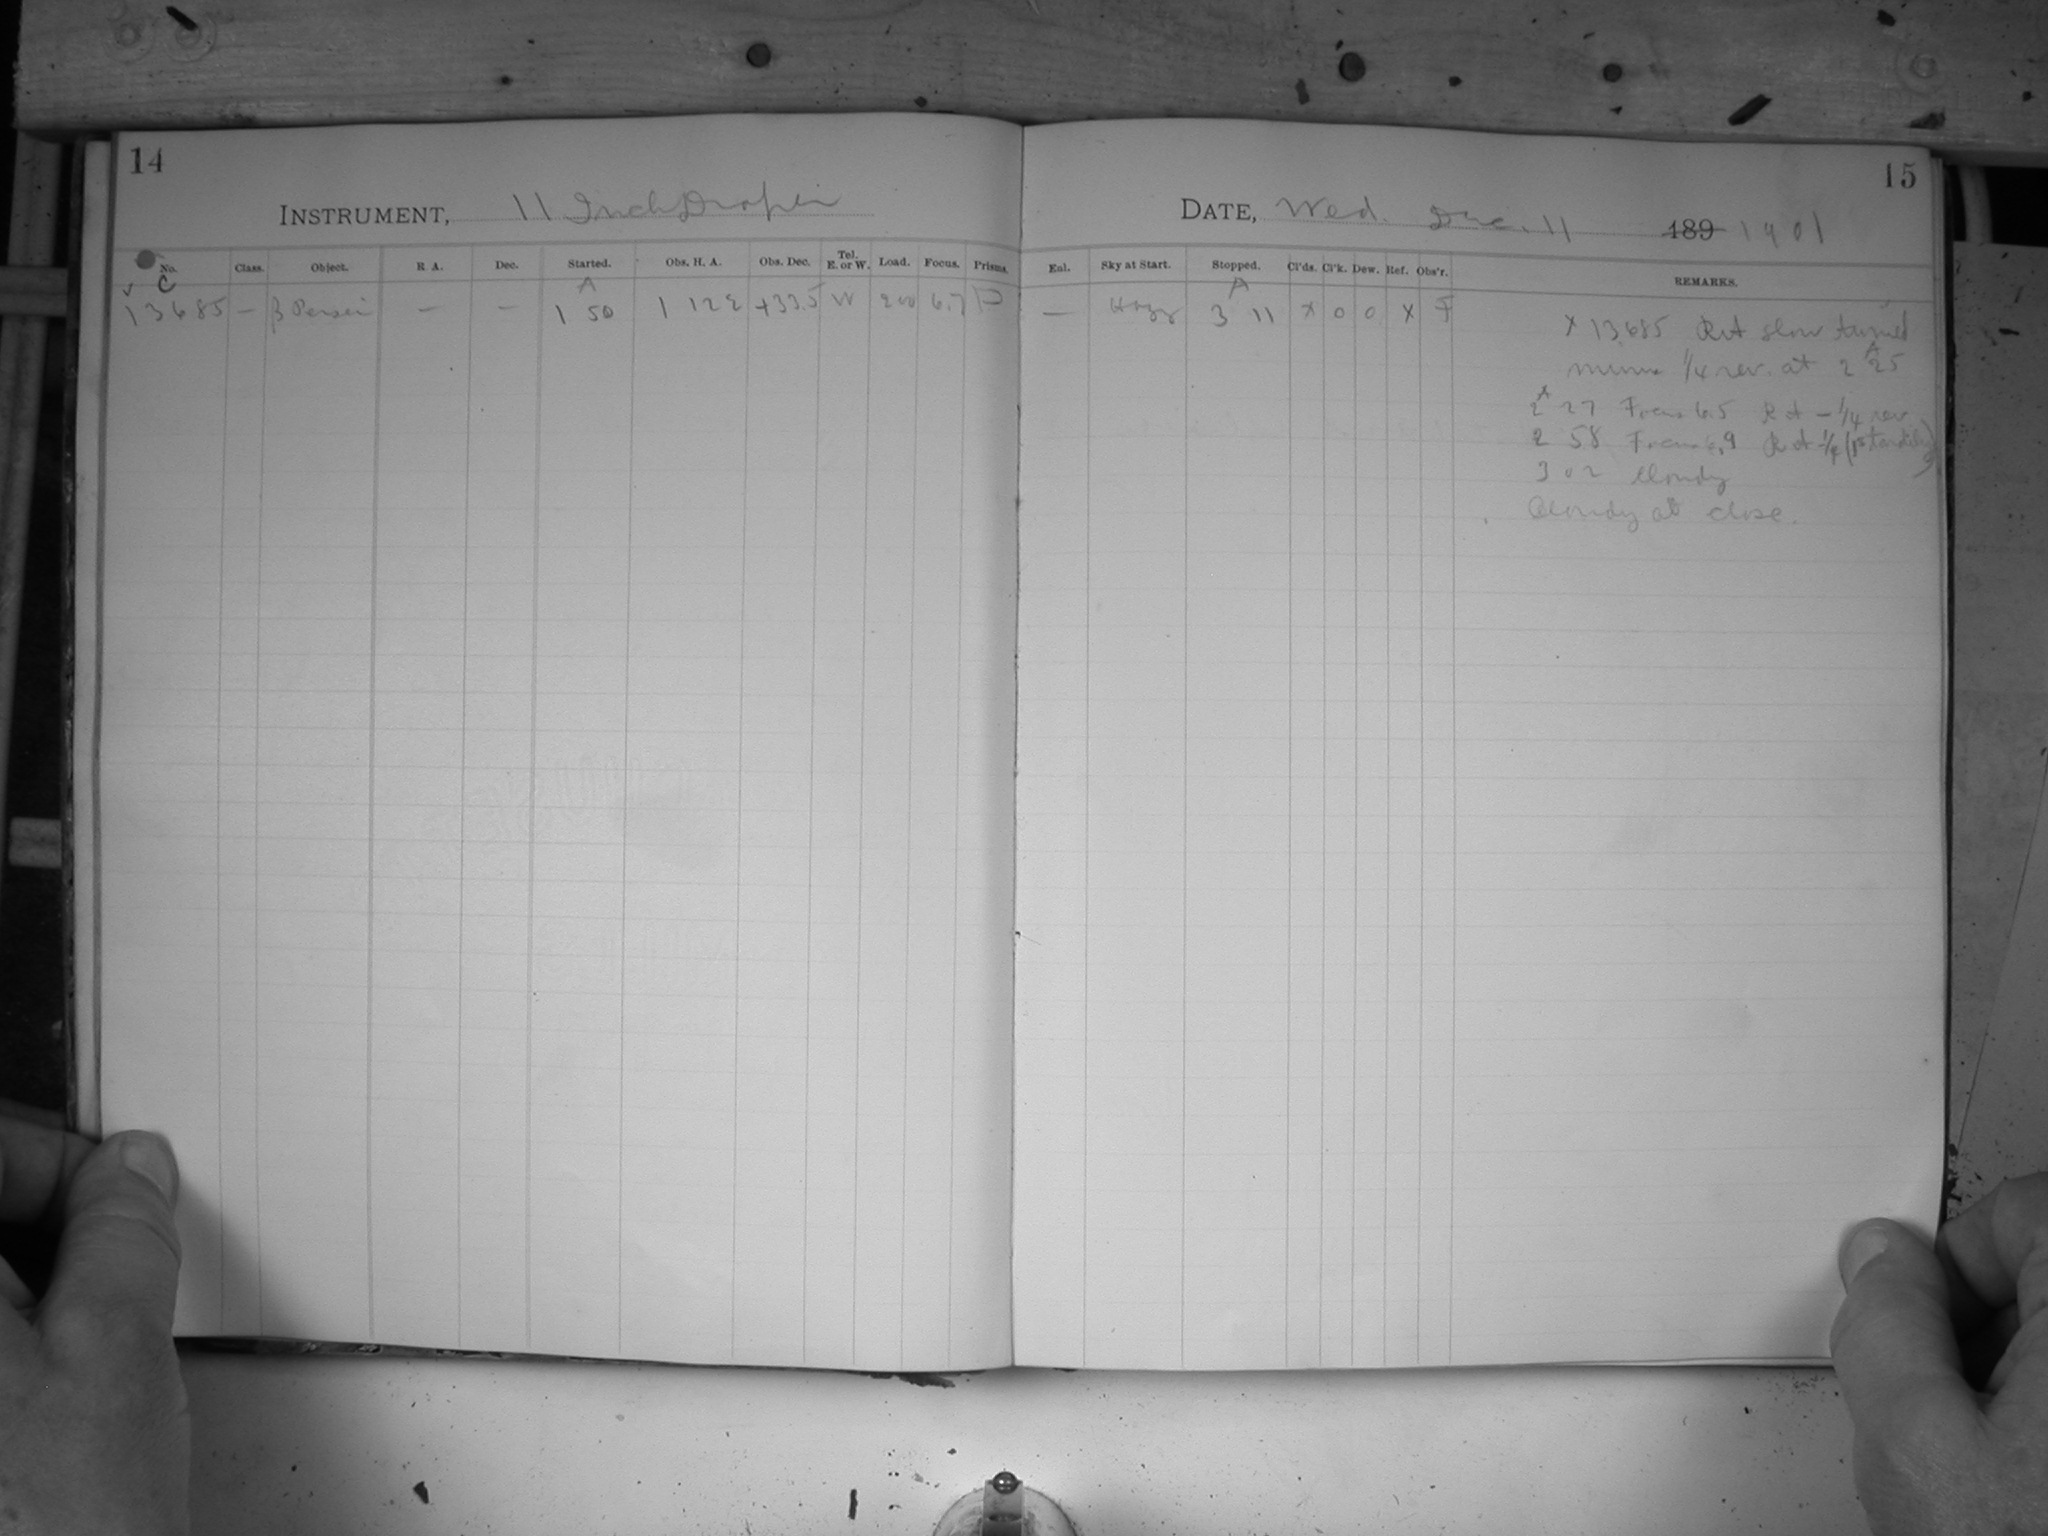 14
INSTRUMENT, 11 Inch Draper
No. Class. Object. R A. Dec. Started. Obs. H. A. Obs. Dec. Tel. E. or W. Load. Focus. Prisms.
C A
13685 — β Persei — — 1 50 1 122 +33.5 W 200 6.7 P
15
DATE, Wed. Dec. 11 189 1901
Enl. Sky at Start. Stopped. Cl'ds. Cl'k. Dew. Ref. Obs'r. REMARKS.
A
— Hazy 3 11 x 0 0 x F
x 13685 Rot slow turned
minus 1/4 rev. at 2 A 25
2 A 27 Focus 6.5 Rot - 1/4 rev
2 58 Focus 6.9 Rot - 1/4
3 02 Cloudy
Cloudy at close.